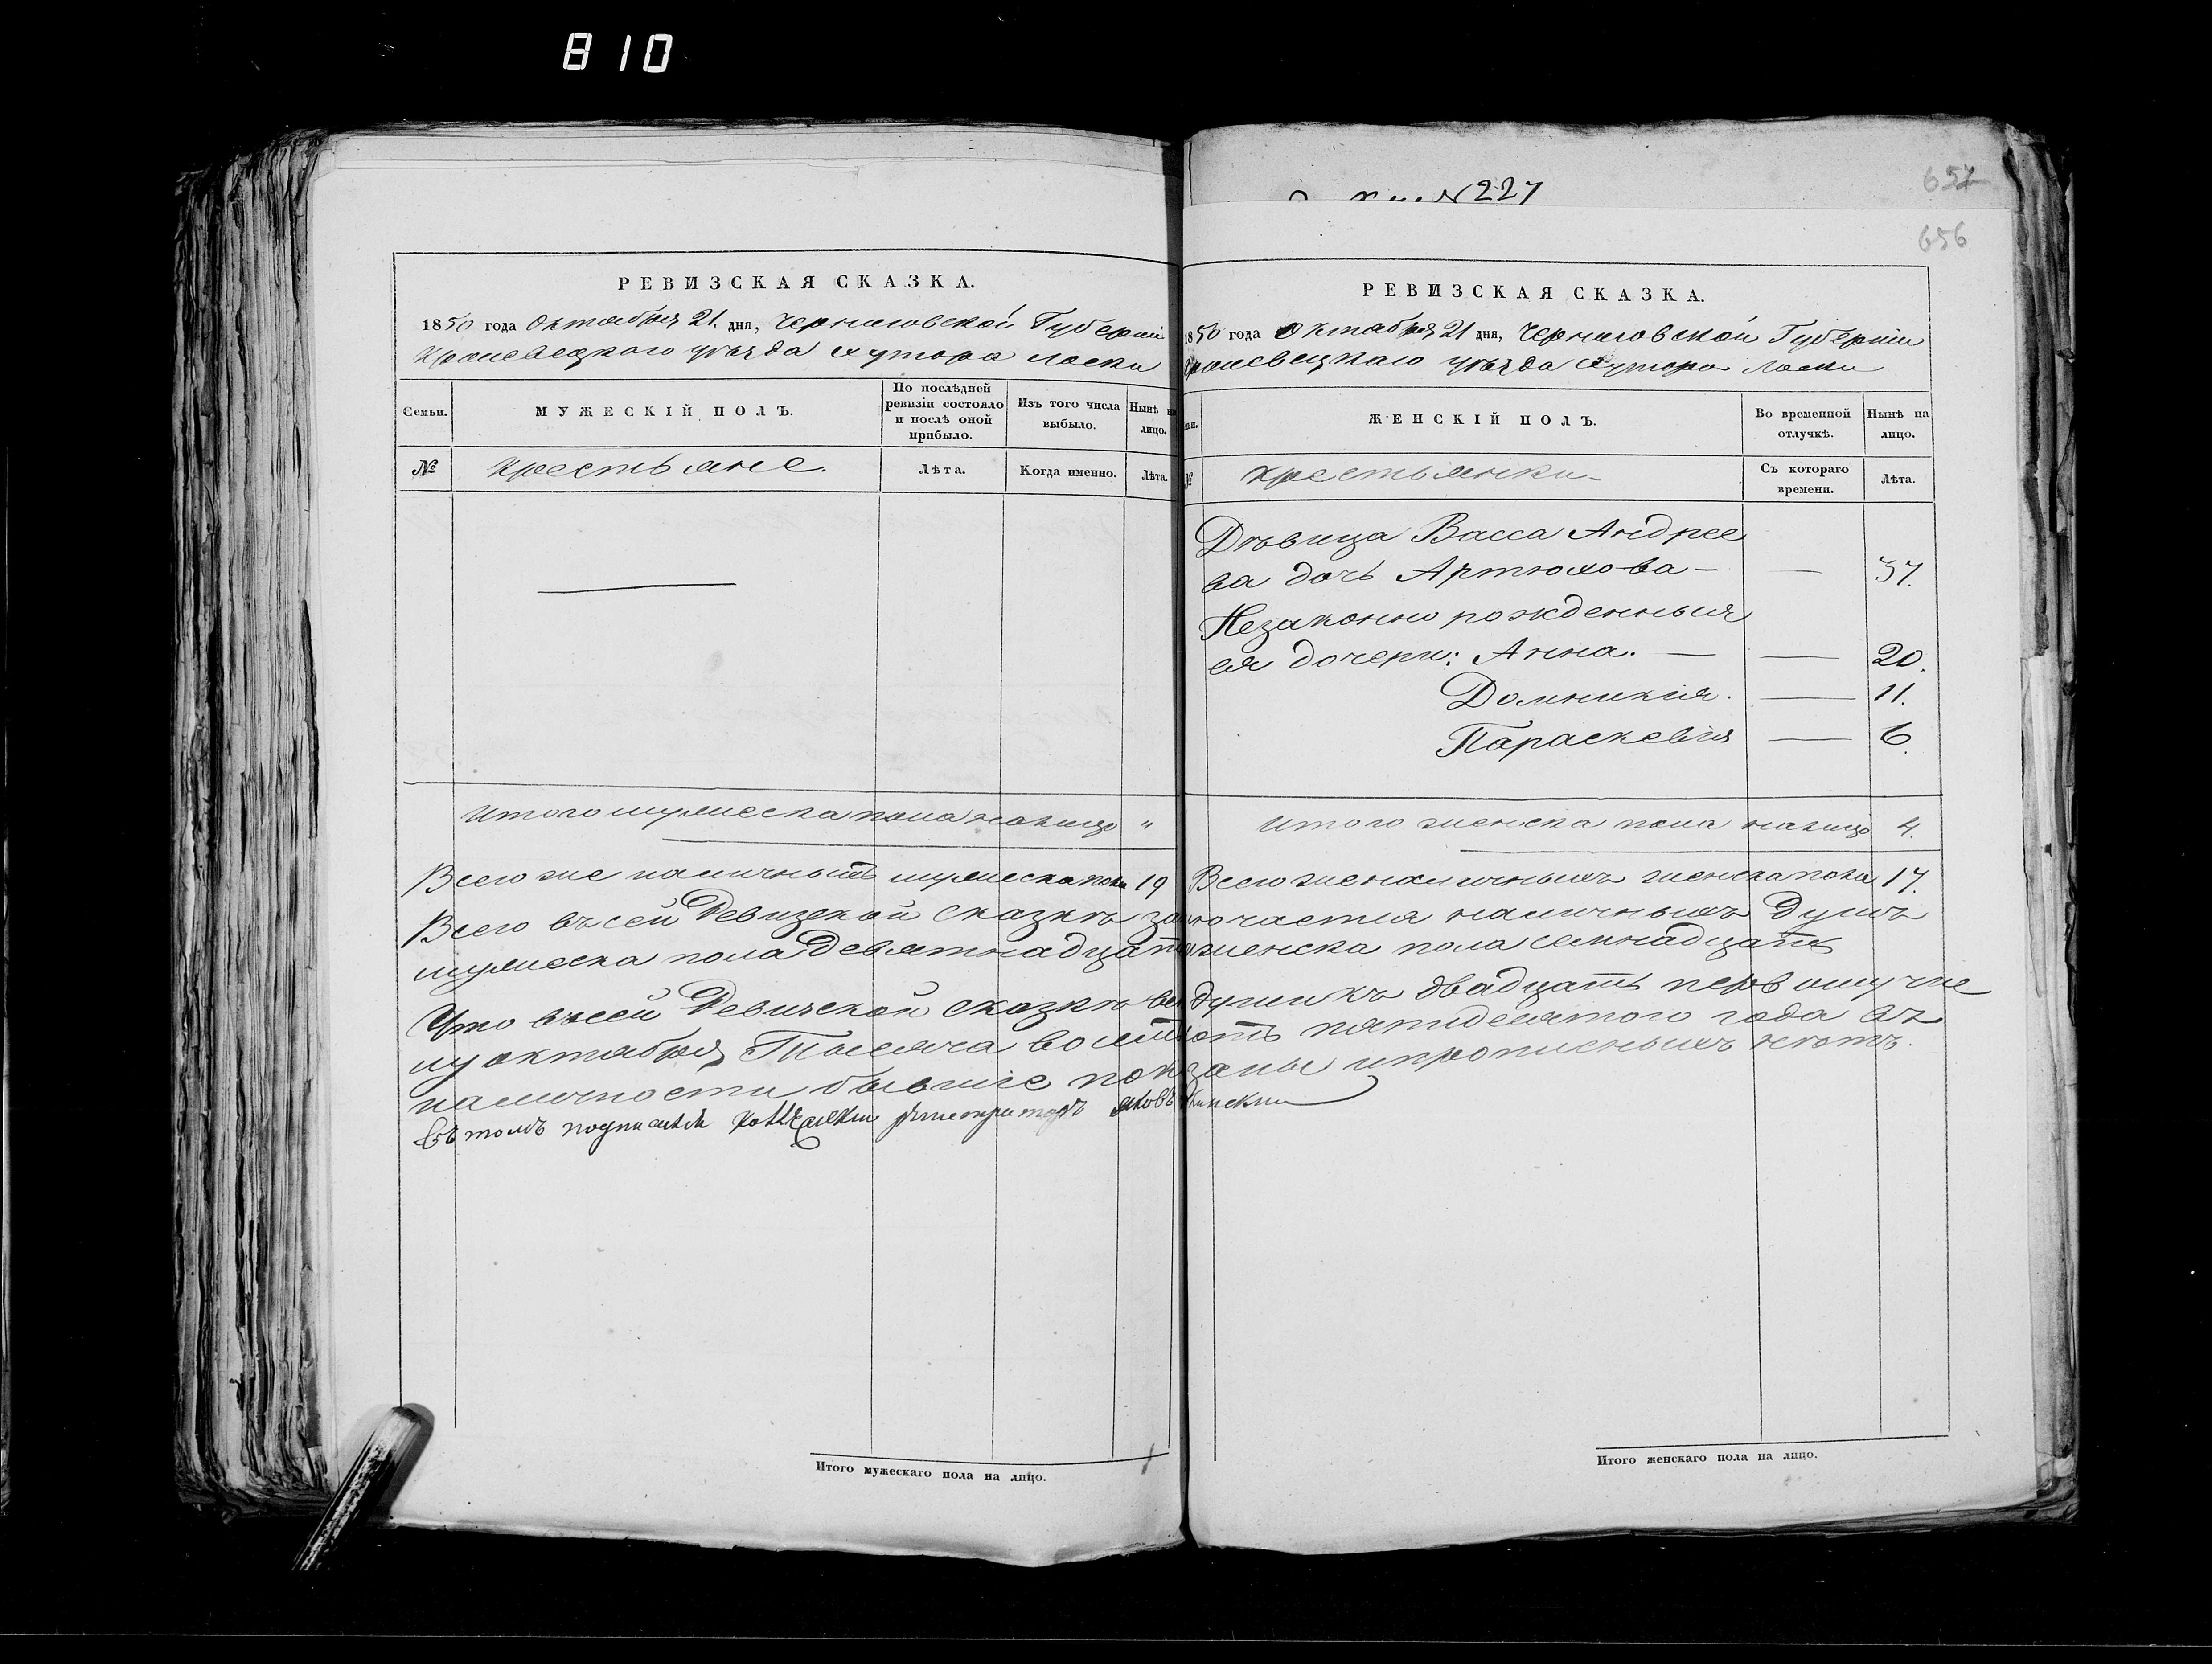 810
№ 227
657
656
РЕВИЗСКАЯ СКАЗКА.
1850 года Октября 21. дня, Черниговской Губерніи
Кролевецкого уѣзда хутора Лоски
Семьи.
МУЖЕСКІЙ ПОЛЪ.
По послѣдней ревизіи состояло и послѣ оной прибыло.
Изъ того числа выбыло.
Нынѣ на лицо.
№
Крестьяне.
Лѣта.
Когда именно.
Лѣта.
Итого мужеска пола налицо "
Всего же наличныхъ мужеска пола 19
РЕВИЗСКАЯ СКАЗКА.
1850 года Октября 21 дня, Черниговской Губерніи
Кролевецкаго уѣзда хутора Лоски
ЖЕНСКІЙ ПОЛЪ.
Во временной отлучкѣ.
Нынѣ на лицо.
№
Крестьянки
Съ котораго времени.
Лѣта.
Дѣвица Васса Андрее
ва дочь Артюхова — — 37.
Незаконно рожденныя
ея дочери: Анна. — — 20.
Домникія. — 11.
Параскевія — 6.
Итого женска пола налицо 4.
Всего же наличныхъ женска пола 17.
Всего въ сей Ревизской сказкѣ заключается наличныхъ Душъ
мужеска пола Девятнадцать женска пола семнадцать
Что въ сей Ревизской сказкѣ все души къ двадцать первому чис
лу октября Тысяча восемьсотъ пятидесятого года въ
наличности бывшіе показаны и прописныхъ нѣтъ.
въ томъ подписался Коллежскій регистраторъ Яковъ
Итого мужескаго пола на лицо.
Итого женскаго пола на лицо.